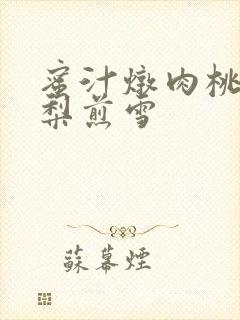 蜜汁燉肉桃
梨煎雪
蘇幕煙